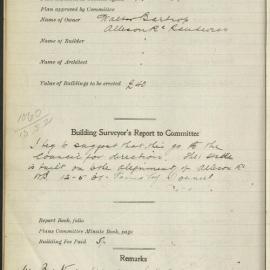 Plan approved by Committee
Name of Owner Walter Bartrop
Allison Rd Randwick
Name of Builder
Name of Architect
Value of Buildings to be erected £40
Building Surveyor's Report to Committee
I beg to suggest that this go to the
Council for direction. The
is built on the alignment of Allison Rd
Council
Report Book, folio
Plans Committee Minute Book, page
Building Fee Paid 5
Remarks